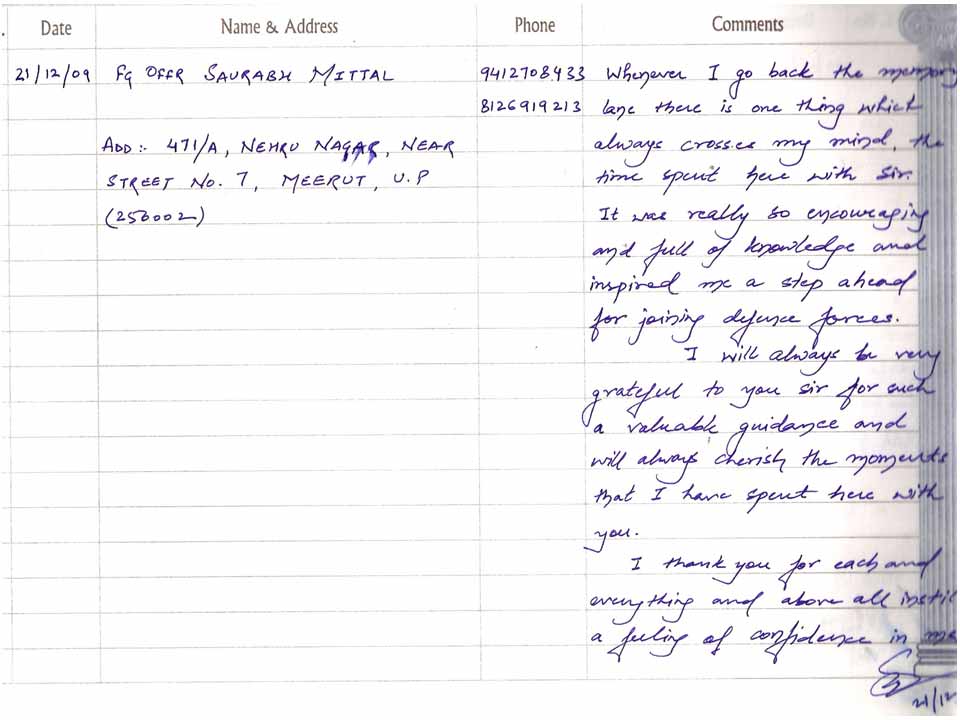 Date Name & Address Phone Comments
21/12/09 FG OFFR SAURABH MITTAL 9412708433 Whenever I go back the memory
8126919213 lane there is one thing which
ADD:- 471/A, NEHRU NAGAR, NEAR always crosses my mind, the
STREET NO. 7, MEERUT, U.P time spent here with sir.
(250002) It was really so encouraging
and full of knowledge and
inspired me a step ahead
for joining defence forces.
I will always be very
grateful to you sir for such
a valuable guidance and
will always cherish the moments
that I have spent here with
you.
I thank you for each and
everything and above all instil
a feeling of confidence in me
21/12